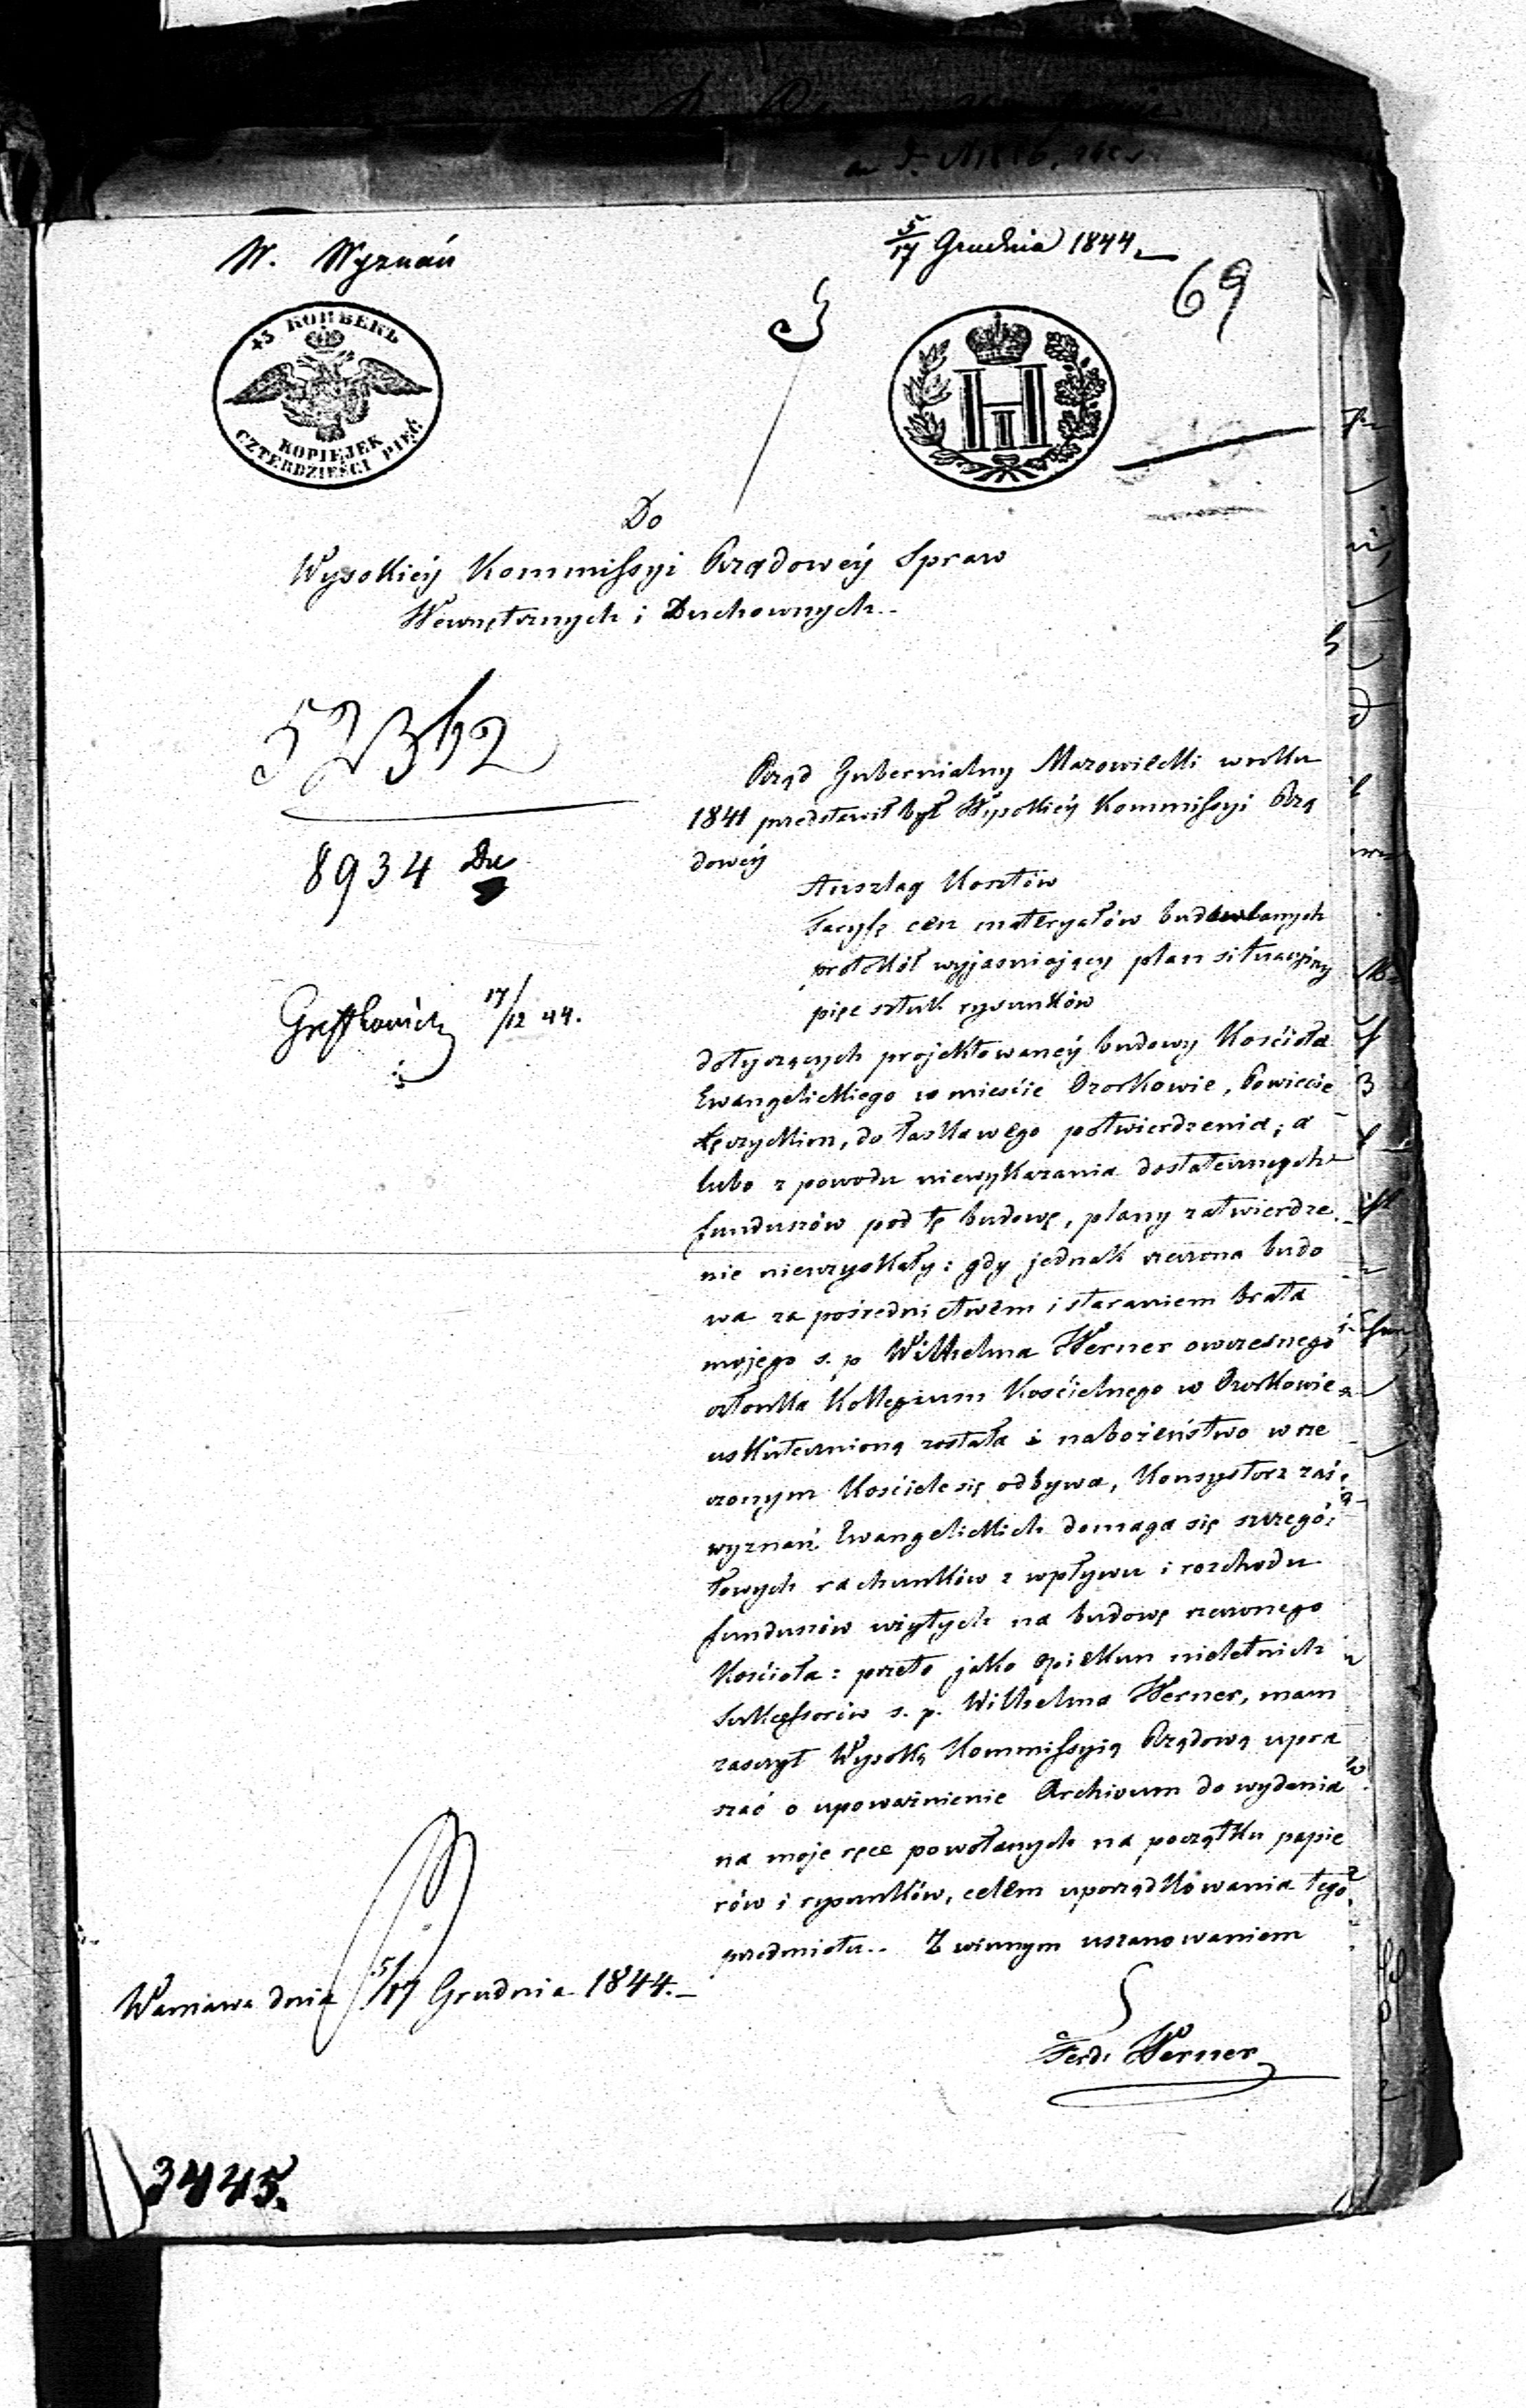 W. Wyznań
5/17 Grudnia 1844
69
45 КОПѢЕКЪ
KOPIEJEK
CZTERDZIEŚCI PIĘĆ
Do
Wysokiéy Kommissyi Rządowéy Spraw
Wewnętrznych i Duchownych
8934
17/12 44.
Rząd Gubernialny Mazowiecki w roku
1841 przedstawił był Wysokiéy Kommissyi Rzą
dowéy
Anszlag Kosztów
Taryfę cen materyałów budowlanych
protokół wyjasniający plan situacyiny
pięc sztuk rysunków
dotyczących projektowanéy budowy Kościoła
Ewangelickiego w mieście Ozorkowie, Powiecie
Łęczyckim, do łaskawego potwierdzenia; a
lubo z powodu niewykazania dostatecznych
funduszów pod tę budowę, plany zatwierdze
nie nieuzyskały: gdy jednak rzeczona budo
wa za pośrednictwem i staraniem brata
mojego s. p Wilhelma Werner owczesnego
członka Kollegium Kościelnego w Ozorkowie
uskutecznioną została i nabożeństwo w rze
czonym Kościele się odbywa, Konsystorz zaś
wyznań Ewangelickich domaga się szczegó
łowych rachunków z wpływu i rozchodu
funduszów użytych na budowę rzeczonego
Kościoła: przeto jako opiekun nieletnich
Sukcessorów s. p. Wilhelma Werner, mam
zaszczyt Wysoką Kommissyią Rządową upra
szać o upoważnienie Archivum do wydania
na moje ręce powołanych na początku papie
rów i rysunków, celem uporządkowania tego
przedmiotu.. Z winnym uszanowaniem
Warszawa dnia 5/17 Grudnia 1844.
Ferd. Werner
3445.